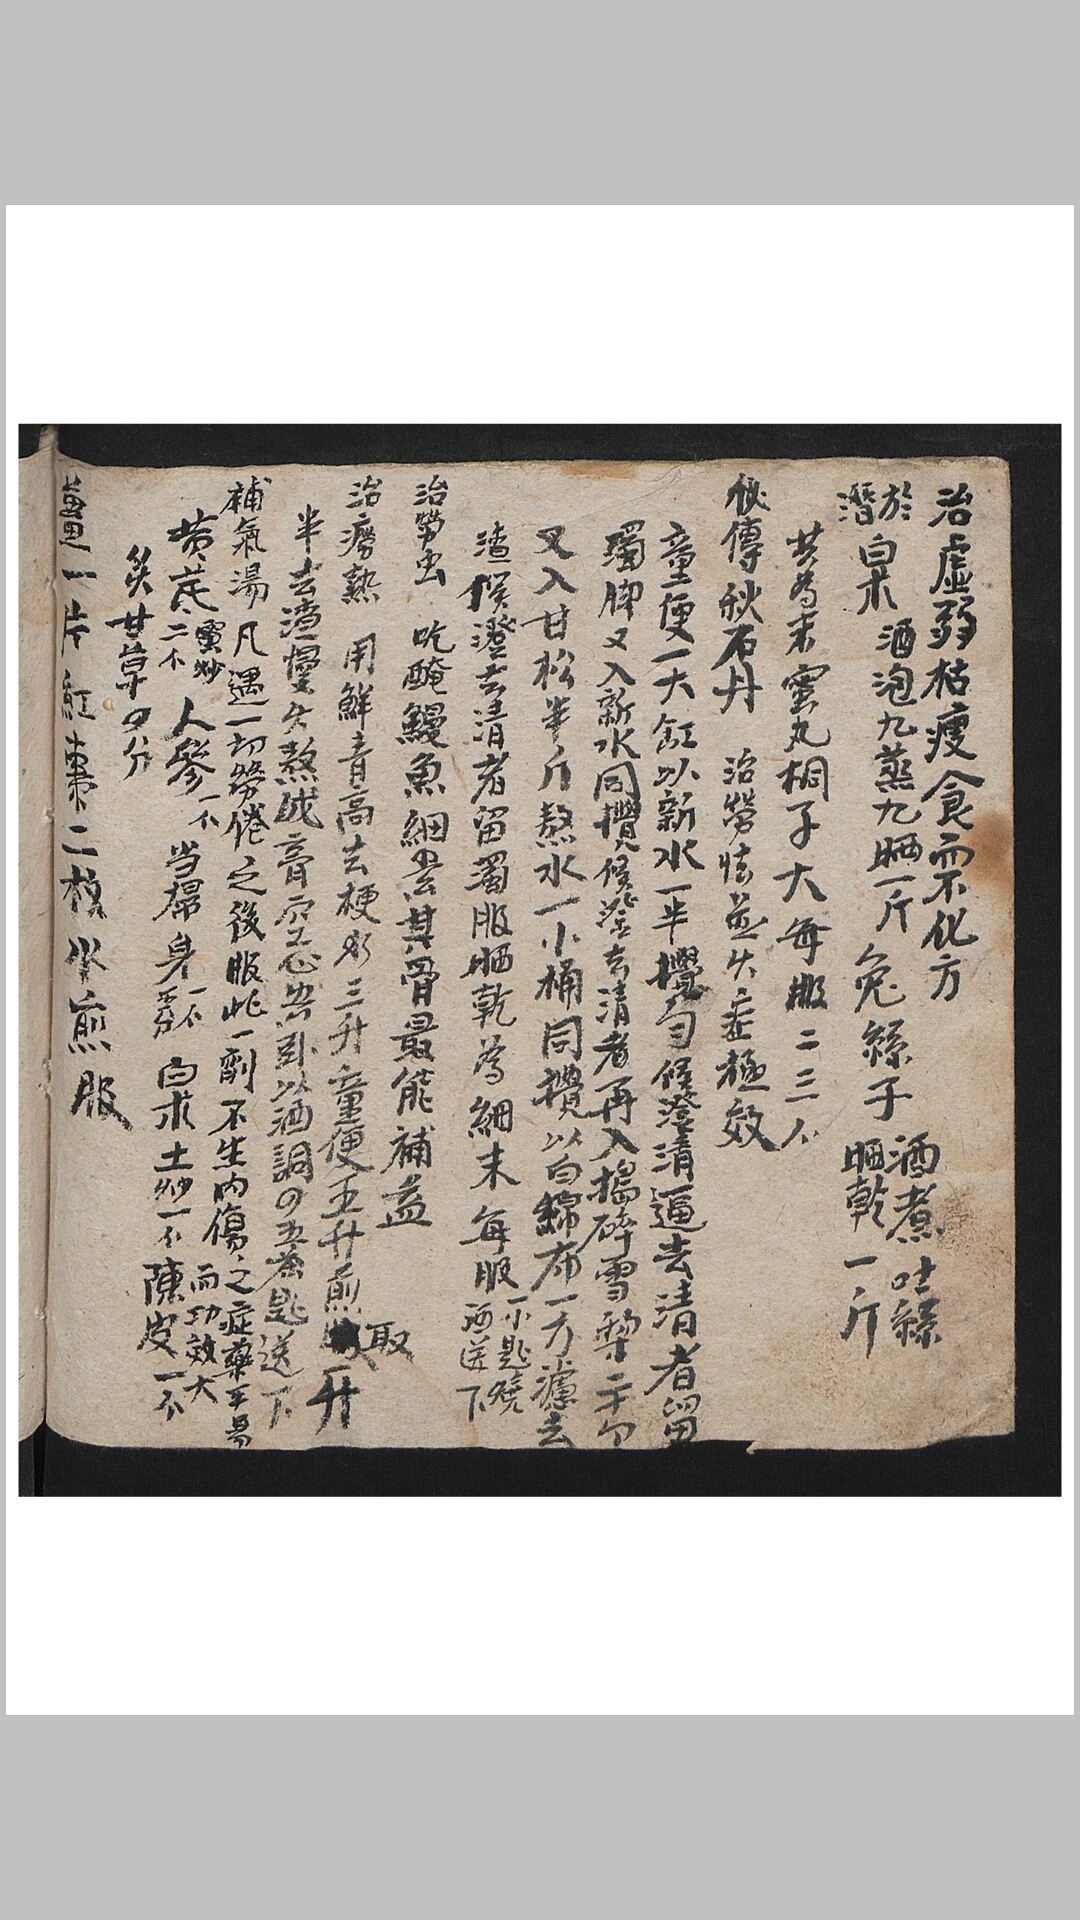 治虛弱枯瘦食而不化方
於潛白朮 酒泡九蒸九晒一斤 兔絲子 酒煮吐絲晒乾 一斤
共為末蜜丸桐子大每服二三
秘傳秋石丹 治勞怯並火症極效
童便一大缸以新水一半攪勻候澄清逼去清者留
濁脚又入新水同攪候澄去清者再入搗碎雪梨二十勺
又入甘松半斤熬水一小桶同攪以白綿布一方濾去
渣候澄去清者留濁脚晒乾為細末每服一小匙燒酒送下
治勞虫 吃醃鰻魚細嚼其骨最能補益
治癆熱 用鮮青高去梗 三升童便五升煎取 升
半去渣慢火熬成膏空心 臥以酒調 五茶匙送下
補氣湯凡遇一切勞倦之後服此一劑不生內傷之症藥 而功效大
黄芪 蜜炒二 人參 一 当歸身 一 白朮土炒一 陳皮一
炙甘草 分
薑一片紅棗二枚水煎服